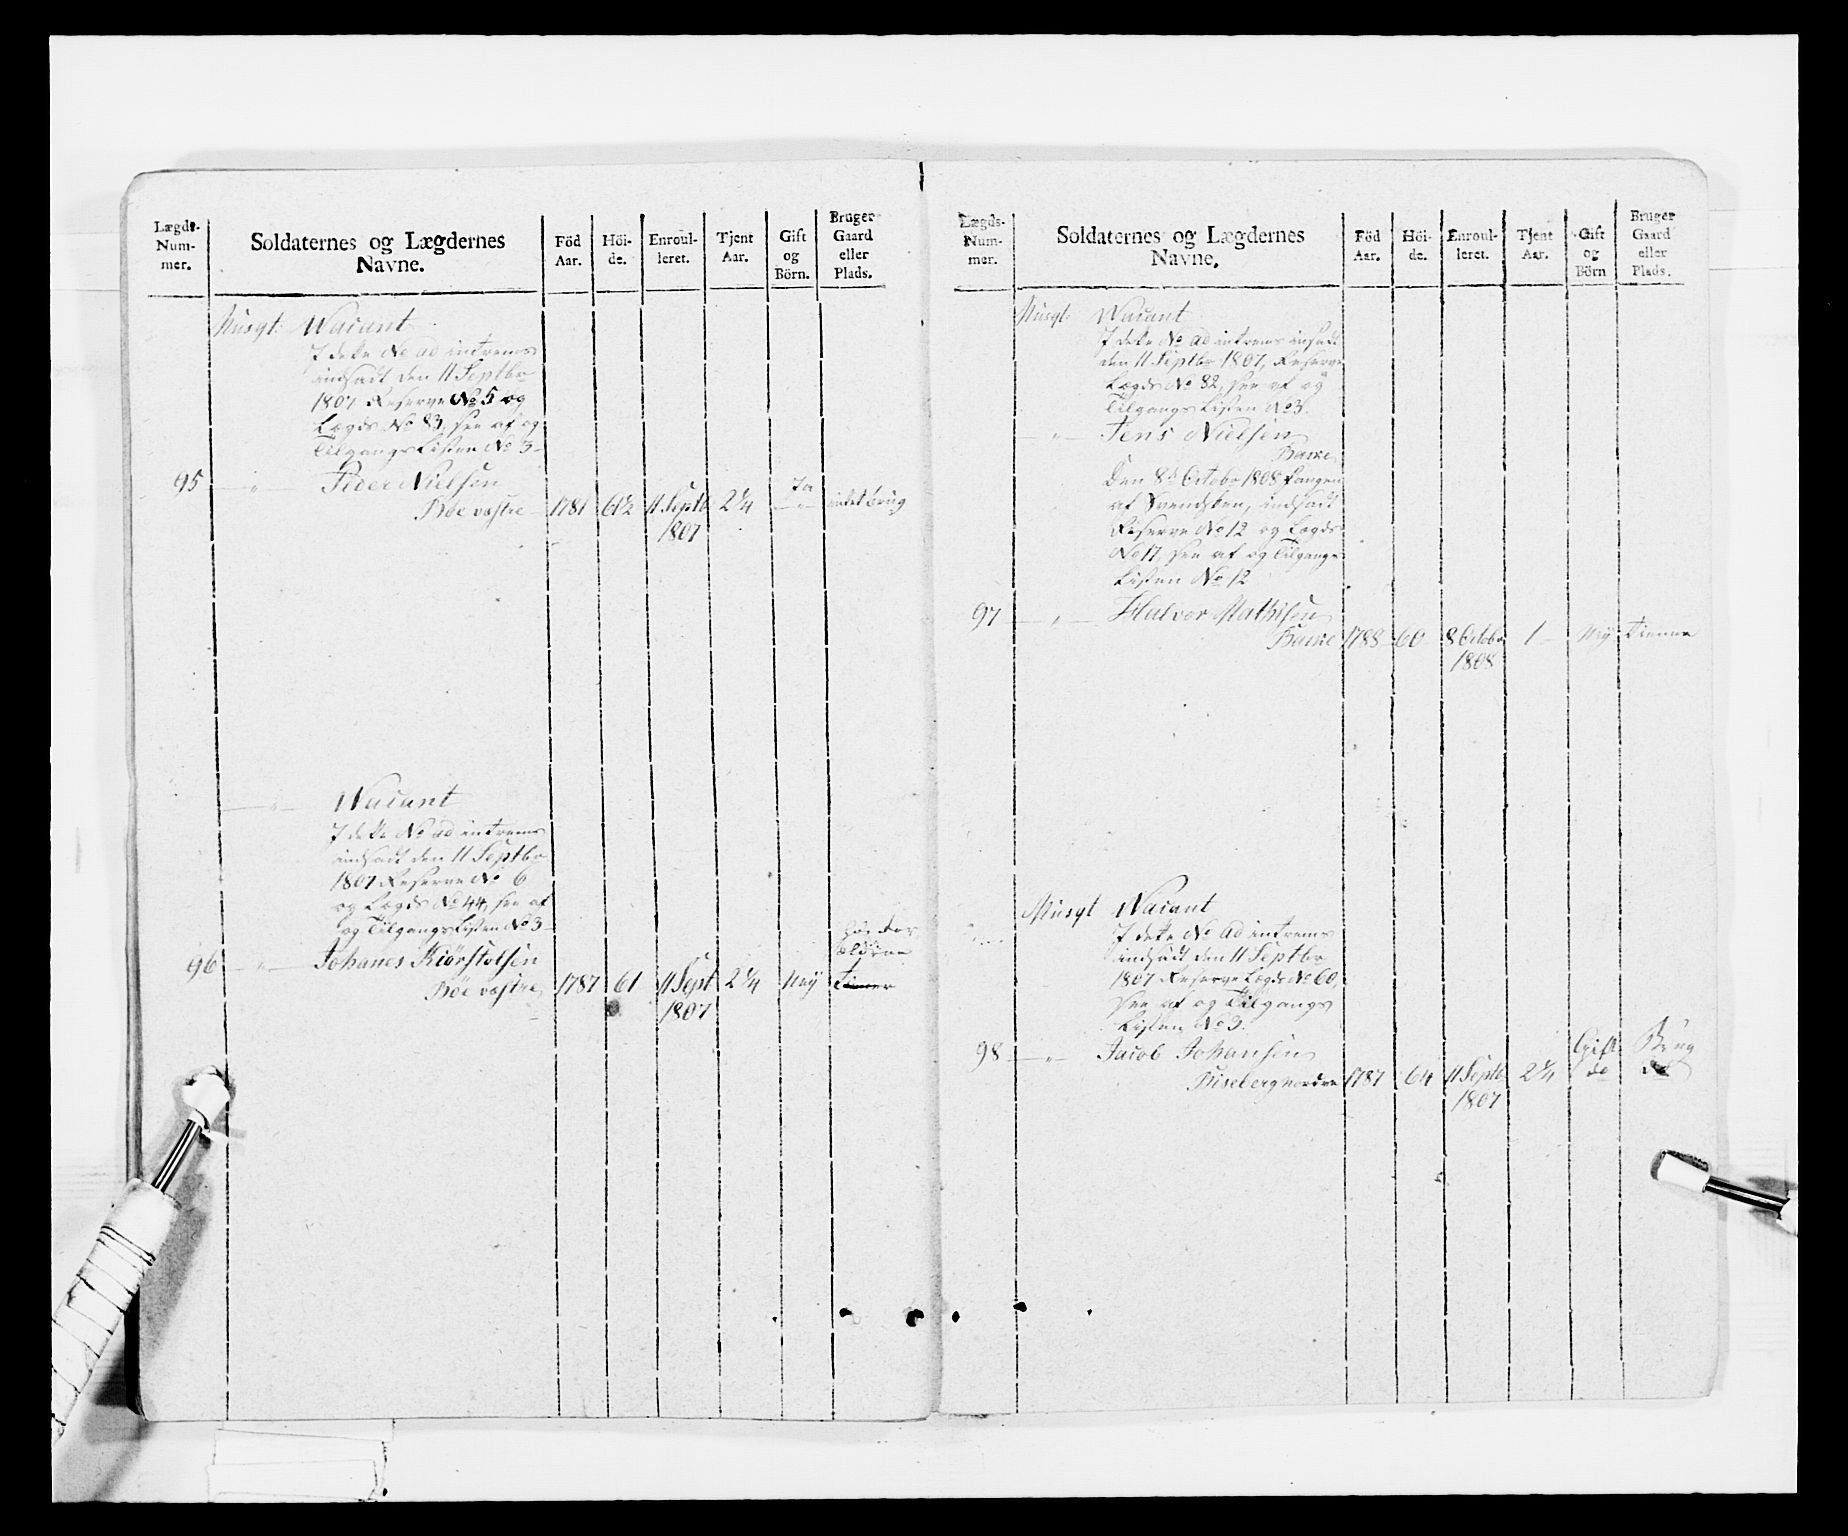 Lægds- Num- mer.
Soldaternes og Lægdernes Navne.
Föd Aar.
Höi- de.
Enroul- leret.
Tjent Aar.
Gift og Börn.
Bruger Gaard eller Plads.
Musqt: Wacant
I dette No ad intrems
indsadt den 11 Septbr
1807 Reserve No 5 og
Lægds No 83, see af og
Tilgangs Listen No 3
95 " Peder Nielsen
Bøe vestre 1781 61½ 11 Septb 2¼ Ja intet brug
1807
" Wacant
I dette No ad intrems
indsadt den 11 Septbr
1807 Reserve No 6
og Lægds No 44, see af
og Tilgangs Listen No 3
96 " Johanes Kiørstølsen
Bøe vestre 1787 61 11 Sept 2¼ Ney
1807
Lægds- Num- mer.
Soldaternes og Lægdernes Navne.
Föd Aar.
Höi- de.
Enroul- leret.
Tjent Aar.
Gift og Börn
Bruger Gaard eller Plads.
Musqt: Wacant
I dette No ad intrems insadt
den 11 Septbr 1807, Reserve
Lægds No 82, see af og
Tilgangs Listen No 3.
" Jens Nielsen
Den 8de Octobr 1808 fangen
af Svendsken, indsadt
Reserve No 12 og Lægds
No 17, see af og Tilgangs
Listen No 12
97 " Halvor Mathisen
1788 60 8 Octobr 1 Ney Tienner
1808
Musqt Wacant
I dette No ad intrems
indsadt den 11 Septbr
1807 Reserve Lægds No 60,
see af og Tilgangs
Listen No 3.
98 " Jacob Johansen
Gift Brug
nordre 1787 64 11 Septb 2¼ do
1807